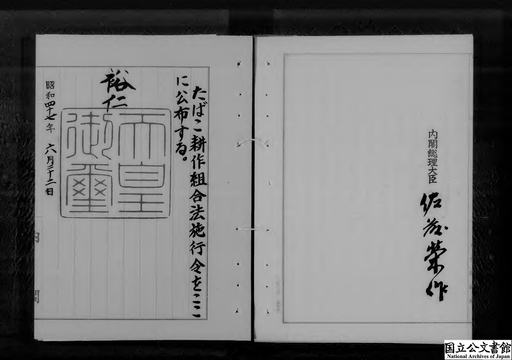 たばこ耕作組合法施行令をここ
に公布する。
裕仁
天皇
御璽
昭和四十七年 六月二十二日
内閣
内閣総理大臣
佐藤榮作
国立公文書館
National Archives of Japan